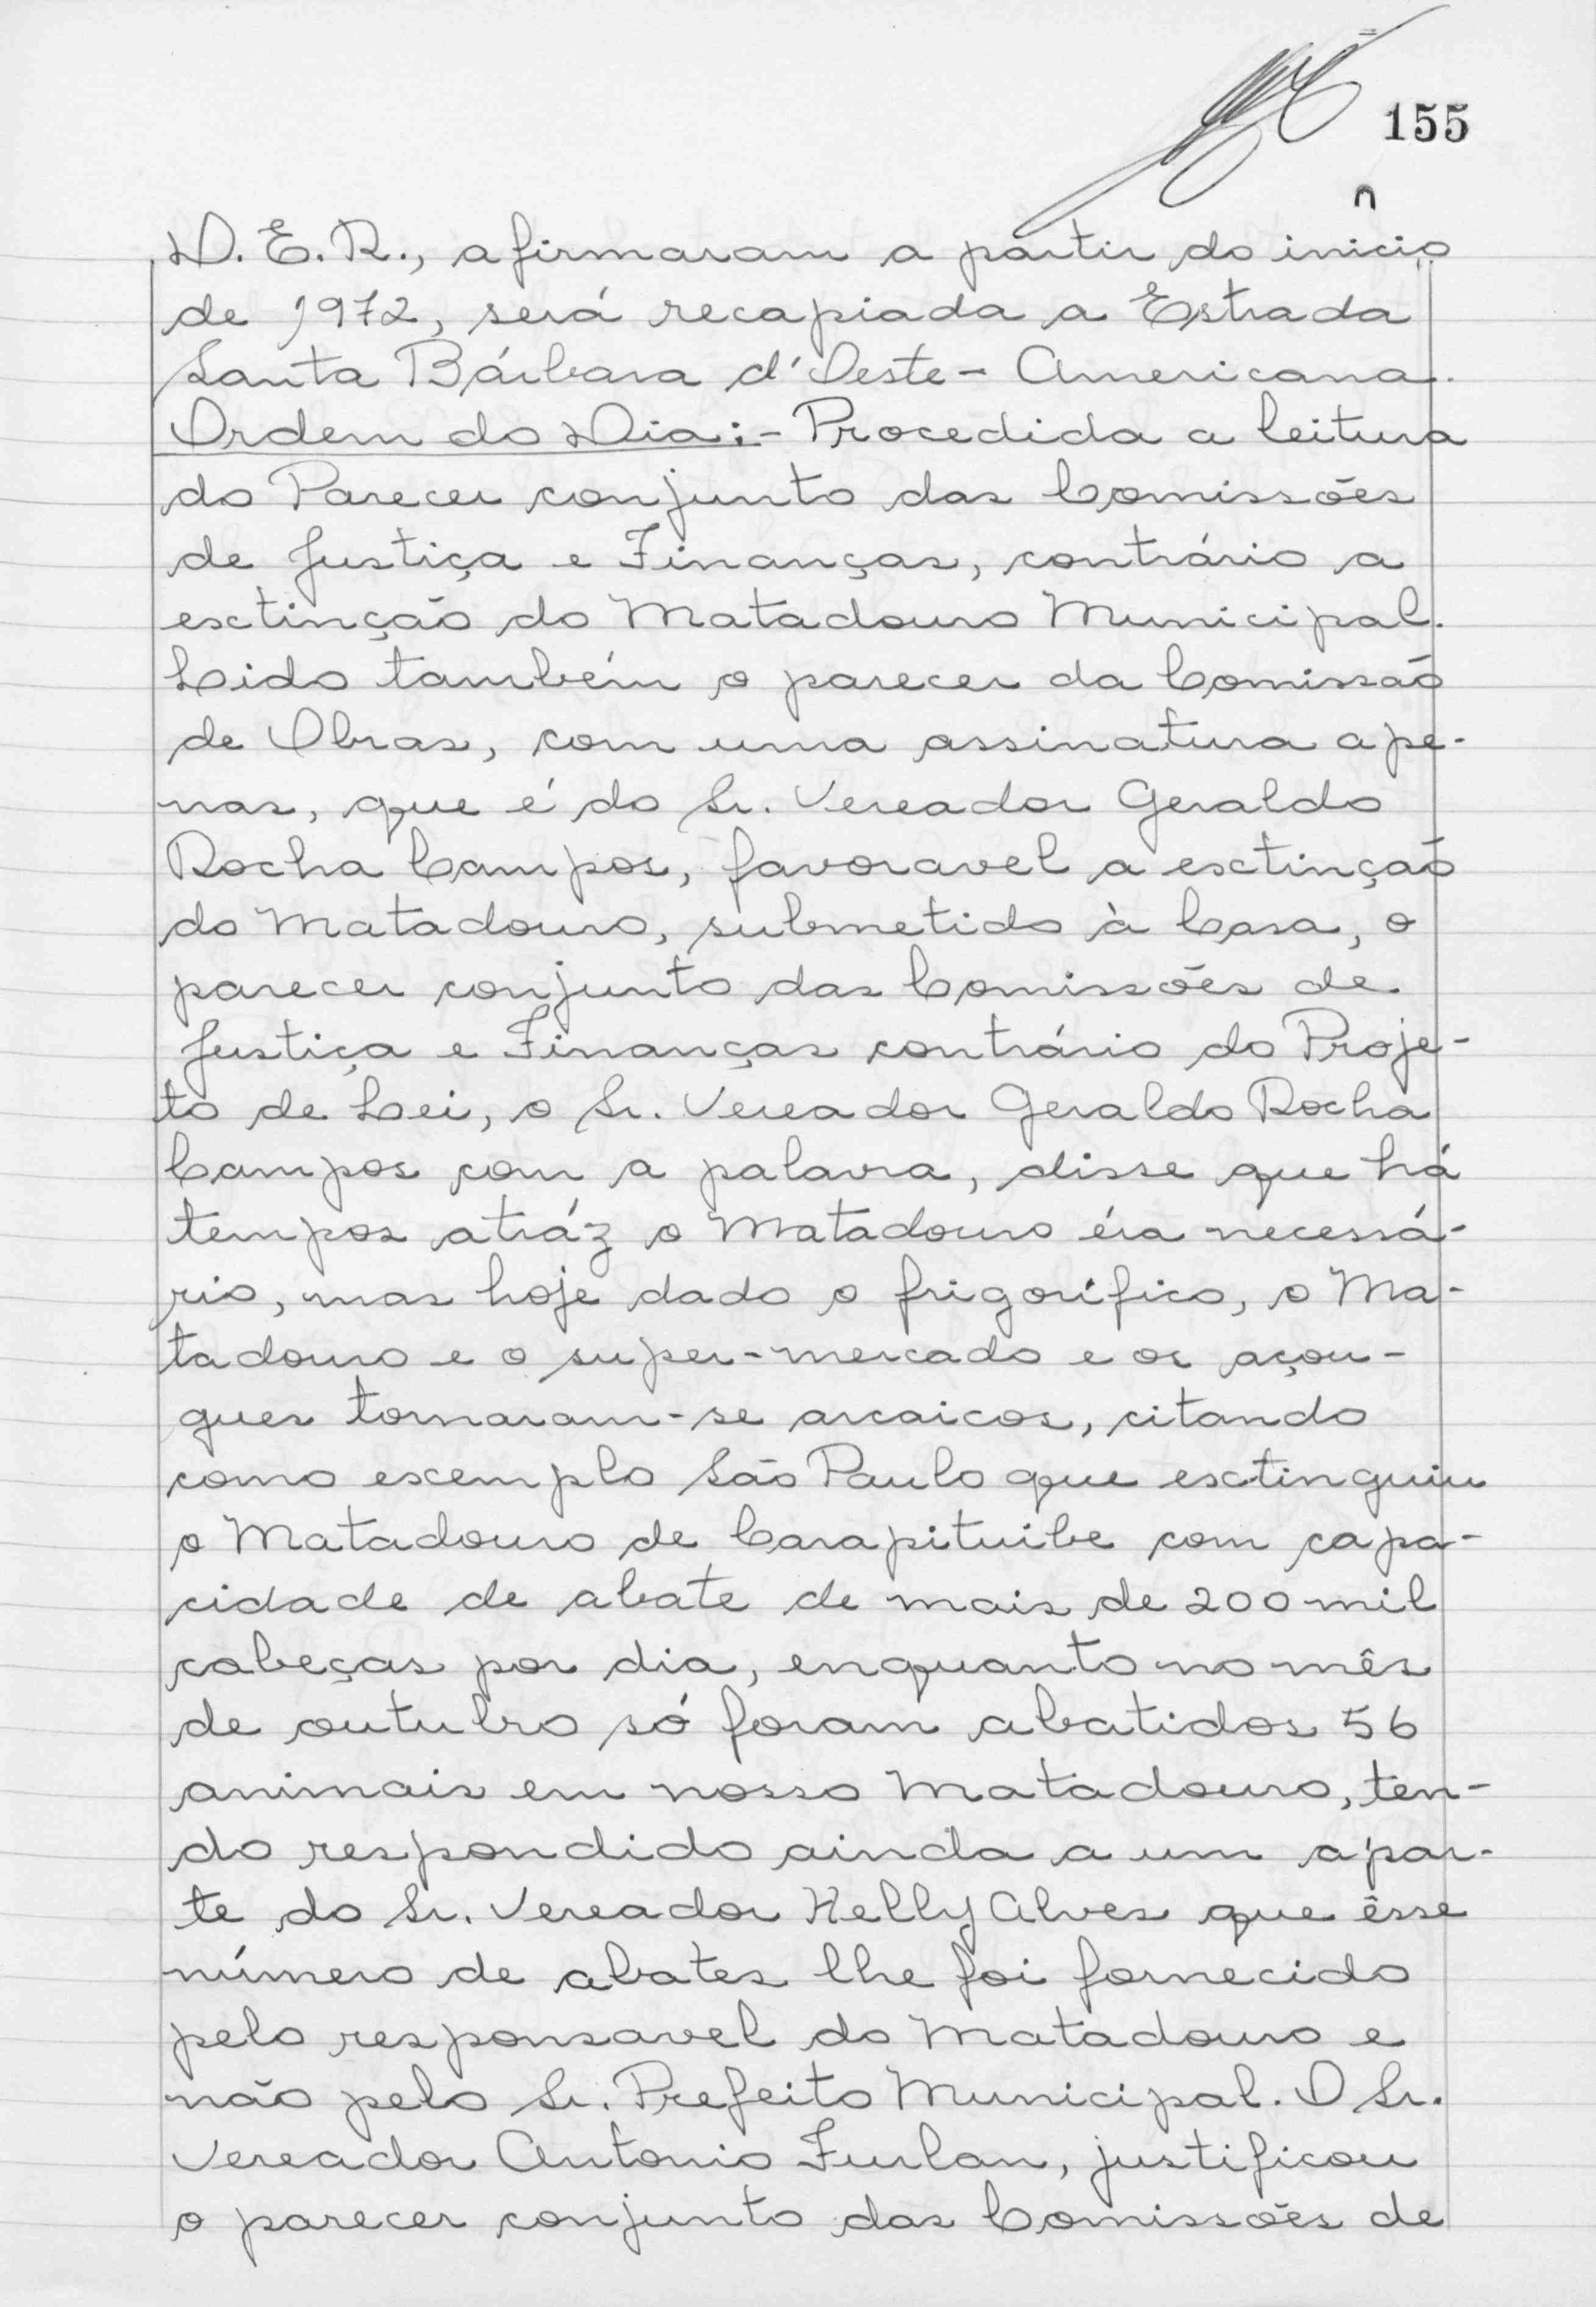 155
D.E.R., afirmaram a partir do inicio
de 1972, será recapiada a Estrada
Santa Bárbara d'Oeste - Americana.
Ordem do Dia:- Procedida a leitura
do Parecer conjunto das Comissões
de Justiça e Finanças, contrário a
extinção do Matadouro Municipal.
Lido também o parecer da Comissão
de Obras, com uma assinatura ape-
nas, que é do Sr. Vereador Geraldo
Rocha Campos, favoravel a extinção
do Matadouro, submetido à Casa, o
parecer conjunto das Comissões de
Justiça e Finanças contrário do Proje-
to de Lei, o Sr. Vereador Geraldo Rocha
Campos com a palavra, disse que há
tempos atráz o Matadouro éra necessá-
rio, mas hoje dado o frigorífico, o Ma-
tadouro e o super-mercado e os açou-
gues tornaram-se arcaicos, citando
como exemplo São Paulo que extinguiu
o Matadouro de Carapituibe com capa-
cidade de abate de mais de 200 mil
cabeças por dia, enquanto no mês
de outubro só foram abatidos 56
animais em nosso Matadouro, ten-
do respondido ainda a um apar-
te do Sr. Vereador Kelly Alves que êsse
número de abates lhe foi fornecido
pelo responsavel do Matadouro e
não pelo Sr. Prefeito Municipal. O Sr.
Vereador Antonio Furlan, justificou
o parecer conjunto das Comissões de